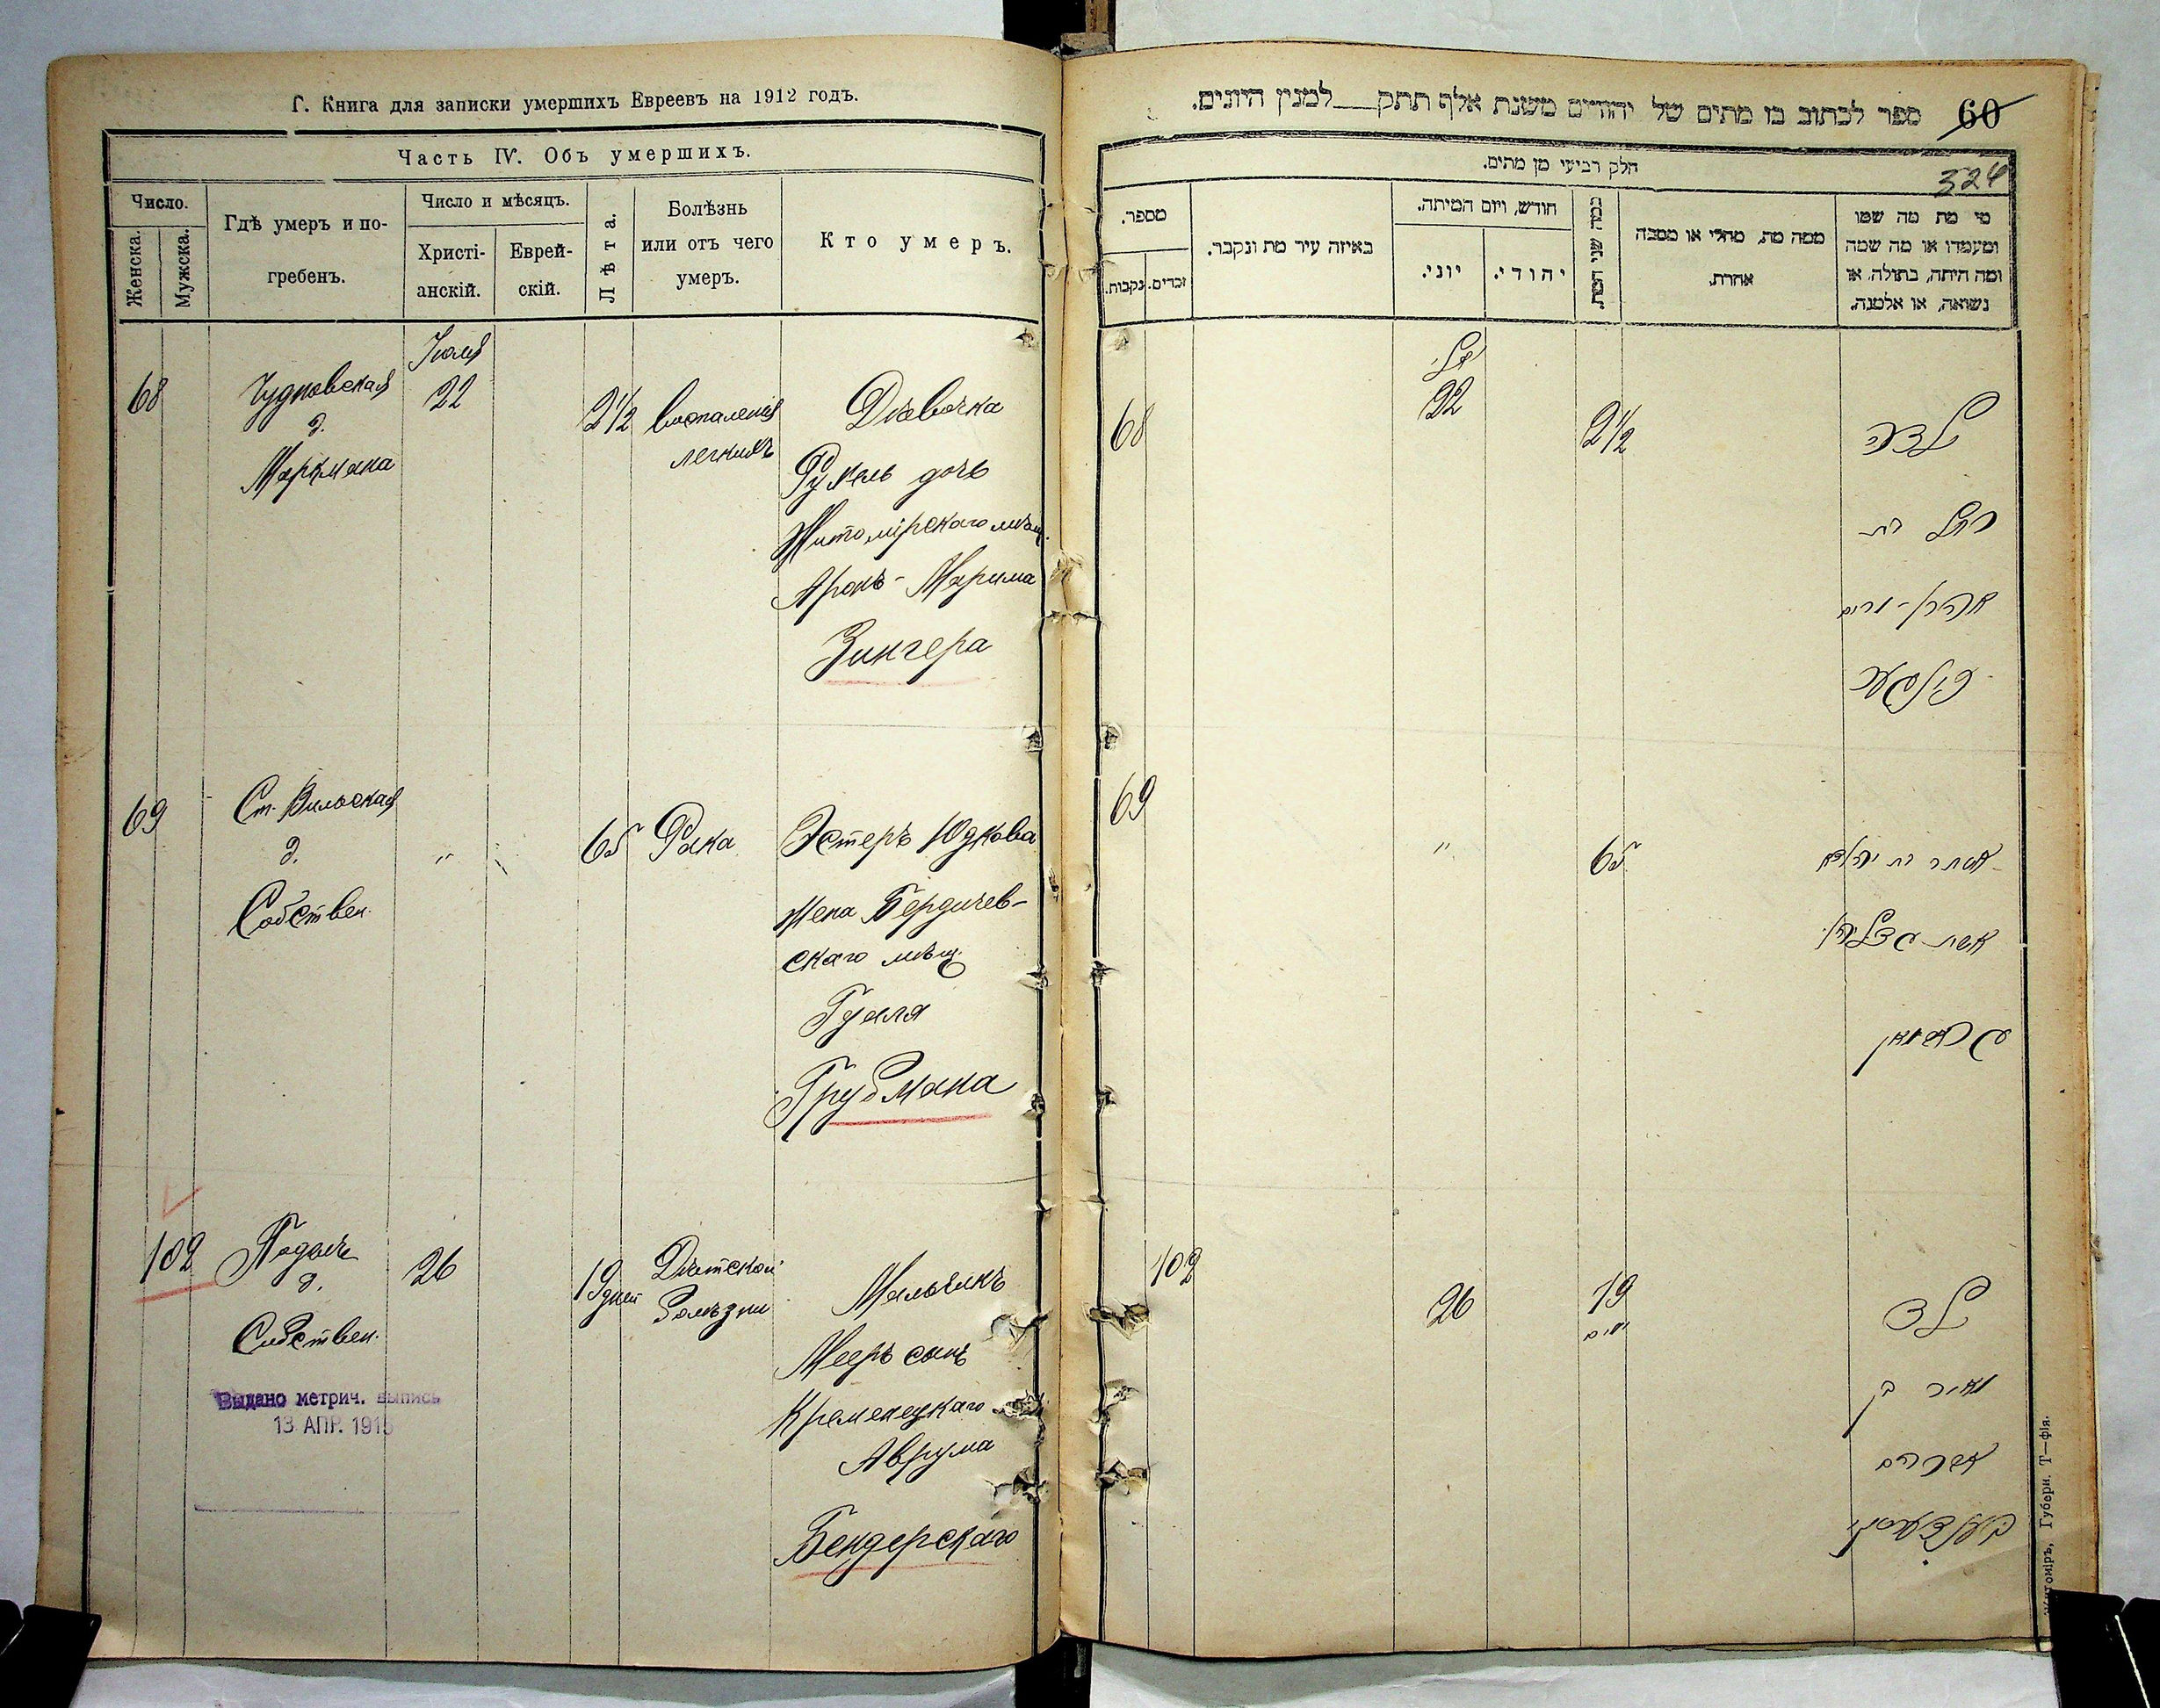 Г. Книга для записки умершихъ Евреевъ на 1912 годъ.
Часть IV. Объ умершихъ.
Число.
Женска.
Мужска.
Гдѣ умеръ и по-
гребенъ.
Число и мѣсяцъ.
Христі-
анскій.
Еврей-
скій.
Лѣта.
Болѣзнь
или отъ чего
умеръ.
Кто умеръ.
68
Чудновская
д.
Маркмана
Іюля
22
2 1/2
Воспаленія
легкихъ
Дѣвочка
Рухель дочь
Житомірскаго мѣщ.
Аронъ-Мерима
Зингера
69
Ст. Вильская
д.
Собствен.
"
65
Рака
Эстеръ Юдкова
жена Бердичев-
скаго мѣщ.
Гдаля
Грубмана
102
д.
Собствен.
26
19 дней
Дѣтской
болѣзни
Мальчикъ
Мееръ сынъ
Кременецкаго
Аврума
Бендерскаго
Выдано метрич. выпись
13 АПР. 1915
ספר לכתוב בו מתים של יהודים משנת אלף תתק למנין היונים.
60
324
חלק רביעי מן מתים.
מספר.
נקבות.
זכרים.
באיזה עיר מת ונקבר.
חודש, ויום המיתה.
יוני.
יהודי.
כמה שני המת.
ממה מת, מחלי או מסבה
אחרת.
מי מת מה שמו
ומעמדו או מה שמה
ומה היתה, בתולה, או
נשואה, או אלמנה.
68
יולי
22
2 1/2
ילדה
רחל בת
אהרן-מרים
זינגער
69
"
65
אסתר בת יודקא
אשת גדליהו
גרובמאן
102
26
19
ימים
ילד
מאיר בן
אברהם
בענדערסקי
Житоміръ, Губерн. Т—фія.